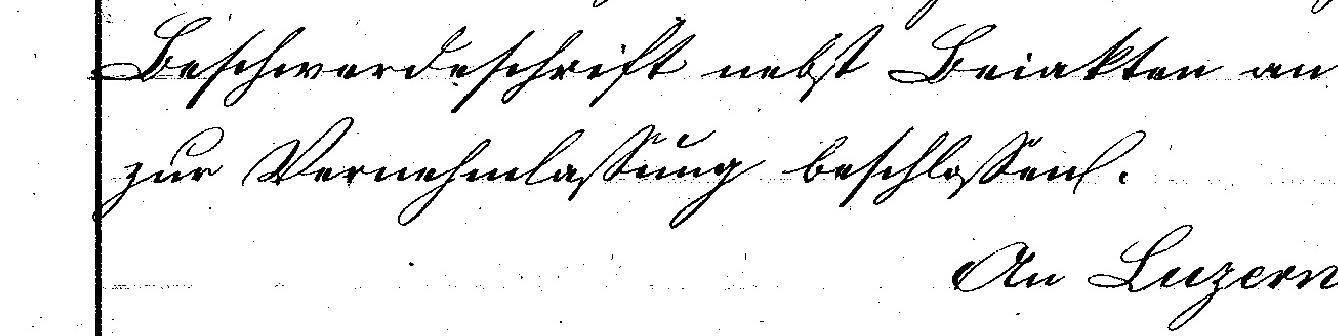 Beschwerdeschrift nebst Beiakten an
zur Vernehmlassung beschlossen.
An Luzern